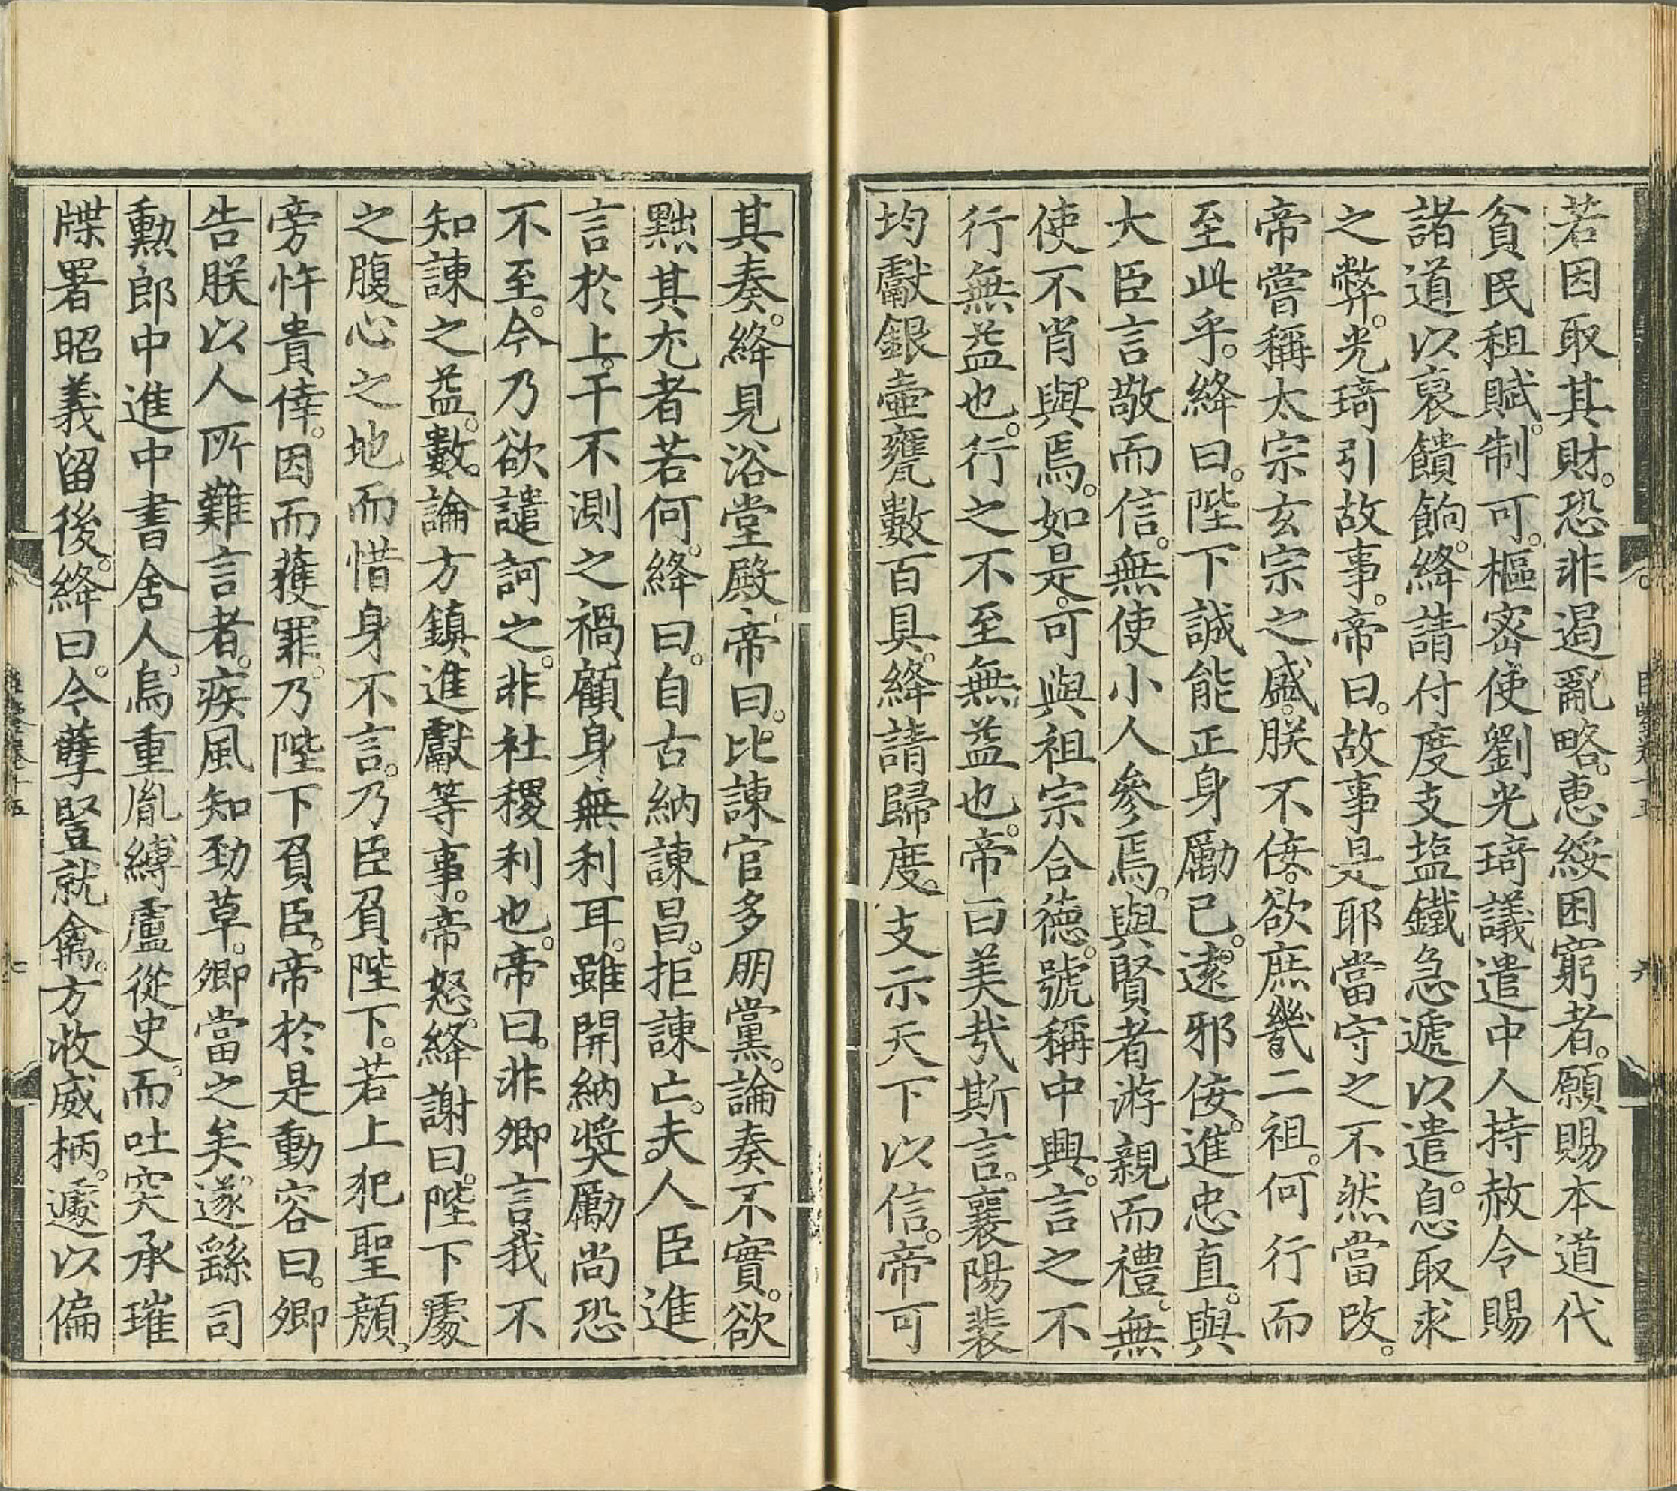 若因取其財。恐非遏亂略。惠綏困窮者。願賜本道代
貧民租賦。制可。樞密使劉光琦議遣中人持赦令賜
諸道以裒饋餉。絳請付度支塩鐵急遞以遣。息取求
之弊。光琦引故事。帝曰。故事是耶當守之不然當改。
帝嘗稱太宗玄宗之盛。朕不佞。欲庶幾二祖。何行而
至此乎。絳曰。陛下誠能正身勵己。遠邪佞。進忠直。與
大臣言敬而信。無使小人參焉。與賢者游親而禮。無
使不肖與焉。如是。可與祖宗合德。號稱中興。言之不
行無益也。行之不至無益也。帝曰美㦲斯言。襄陽裴
均獻銀壷甕數百具。絳請歸度。支示天下以信。帝可
其奏。絳見浴堂殿。帝曰。比諫官多朋黨。論奏不實。欲
黜其尤者若何。絳曰。自古納諫昌。拒諫亡。夫人臣進
言於上。干不測之禍。顧身無利耳。雖開納奬勵尚恐
不至。今乃欲譴訶之。非社稷利也。帝曰。非卿言我不
知諫之益。數。論方鎮進獻等事。帝怒。絳謝曰。陛下處
之腹心之地而惜身不言。乃臣負陛下。若上犯聖顔。
旁忤貴倖。因而獲罪。乃陛下負臣。帝於是動容曰。卿
告朕以人所難言者。疾風知勁草。卿當之矣。遂繇司
勳郎中進中書舍人。烏重胤縛盧從史。而吐突承璀
牒署昭義留後。絳曰。今孽豎就禽。方收威柄。遽以偏